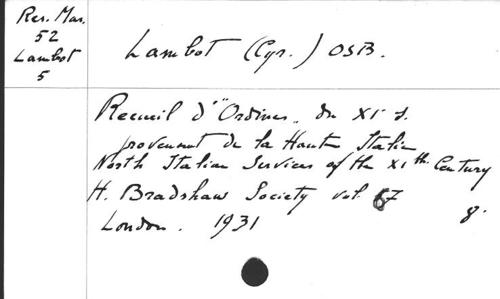 Res. Mus.
52
Lambot
5
Lambot (Cyr.) OSB.
Recueil d'"Ordines" du XIe s.
provenant de la Haute Italie
North Italian Services of the XIth Century
H. Bradshaw Society vol. 67
London. 1931 8°